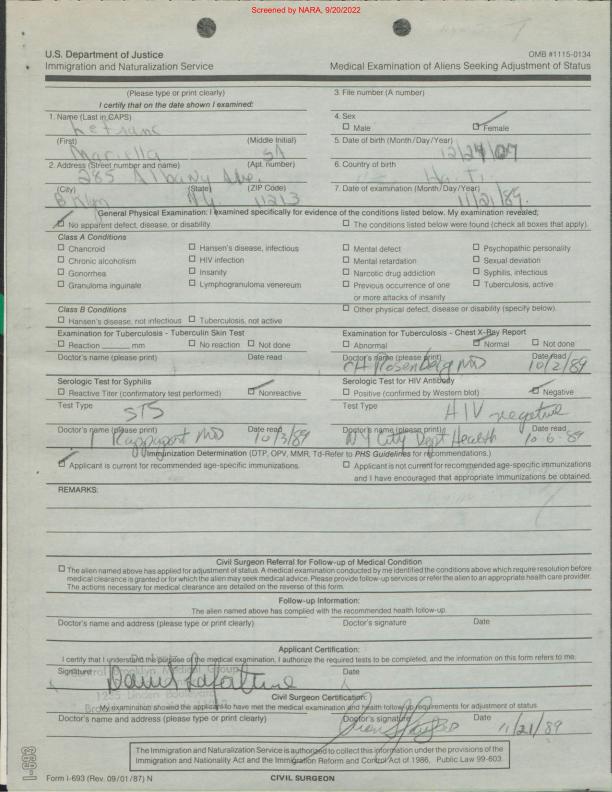 Screened by NARA, 9/20/2022
U.S. Department of Justice
Immigration and Naturalization Service
OMB #1115-0134
Medical Examination of Aliens Seeking Adjustment of Status
(Please type or print clearly)
I certify that on the date shown I examined:
3. File number (A number)
1. Name (Last in CAPS)
4. Sex
☐ Male ☐ Female
(First) (Middle Initial)
5. Date of birth (Month/Day/Year)
12/24/09
2. Address (Street number and name) (Apt. number)
285 Albany Ave.
6. Country of birth
Haiti
(City) (State) (ZIP Code)
Bklyn Ny. 11213
7. Date of examination (Month/Day/Year)
11/21/89
General Physical Examination: I examined specifically for evidence of the conditions listed below. My examination revealed;
☐ No apparent defect, disease, or disability
☐ The conditions listed below were found (check all boxes that apply).
Class A Conditions
☐ Chancroid ☐ Hansen's disease, infectious ☐ Mental defect ☐ Psychopathic personality
☐ Chronic alcoholism ☐ HIV infection ☐ Mental retardation ☐ Sexual deviation
☐ Gonorrhea ☐ Insanity ☐ Narcotic drug addiction ☐ Syphilis, infectious
☐ Granuloma inguinale ☐ Lymphogranuloma venereum ☐ Previous occurrence of one or more attacks of insanity ☐ Tuberculosis, active
Class B Conditions
☐ Hansen's disease, not infectious ☐ Tuberculosis, not active
☐ Other physical defect, disease or disability (specify below).
Examination for Tuberculosis - Tuberculin Skin Test
☐ Reaction ____ mm ☐ No reaction ☐ Not done
Doctor's name (please print) Date read
Examination for Tuberculosis - Chest X-Ray Report
☐ Abnormal ☐ Normal ☐ Not done
Doctor's name (please print) Date read
CH Rosenberg MD 10/2/89
Serologic Test for Syphilis
☐ Reactive Titer (confirmatory test performed) ☐ Nonreactive
Test Type
STS
Doctor's name (please print) Date read
Rappaport MD 10/3/89
Serologic Test for HIV Antibody
☐ Positive (confirmed by Western blot) ☐ Negative
Test Type
HIV negative
Doctor's name (please print) Date read
NY City Dept Health 10-6-89
Immunization Determination (DTP, OPV, MMR, Td-Refer to PHS Guidelines for recommendations.)
☐ Applicant is current for recommended age-specific immunizations.
☐ Applicant is not current for recommended age-specific immunizations
and I have encouraged that appropriate immunizations be obtained.
REMARKS:
Civil Surgeon Referral for Follow-up of Medical Condition
☐ The alien named above has applied for adjustment of status. A medical examination conducted by me identified the conditions above which require resolution before
medical clearance is granted or for which the alien may seek medical advice. Please provide follow-up services or refer the alien to an appropriate health care provider.
The actions necessary for medical clearance are detailed on the reverse of this form.
Follow-up Information:
The alien named above has complied with the recommended health follow-up.
Doctor's name and address (please type or print clearly) Doctor's signature Date
Applicant Certification:
I certify that I understand the purpose of the medical examination, I authorize the required tests to be completed, and the information on this form refers to me.
Signature Date
Medical Group
Linden Boulevard
Civil Surgeon Certification:
My examination showed the applicant to have met the medical examination and health follow up requirements for adjustment of status
Doctor's name and address (please type or print clearly) Doctor's signature Date
11/21/89
The Immigration and Naturalization Service is authorized to collect this information under the provisions of the
Immigration and Nationality Act and the Immigration Reform and Control Act of 1986, Public Law 99-603.
I-693
Form I-693 (Rev. 09/01/87) N
CIVIL SURGEON